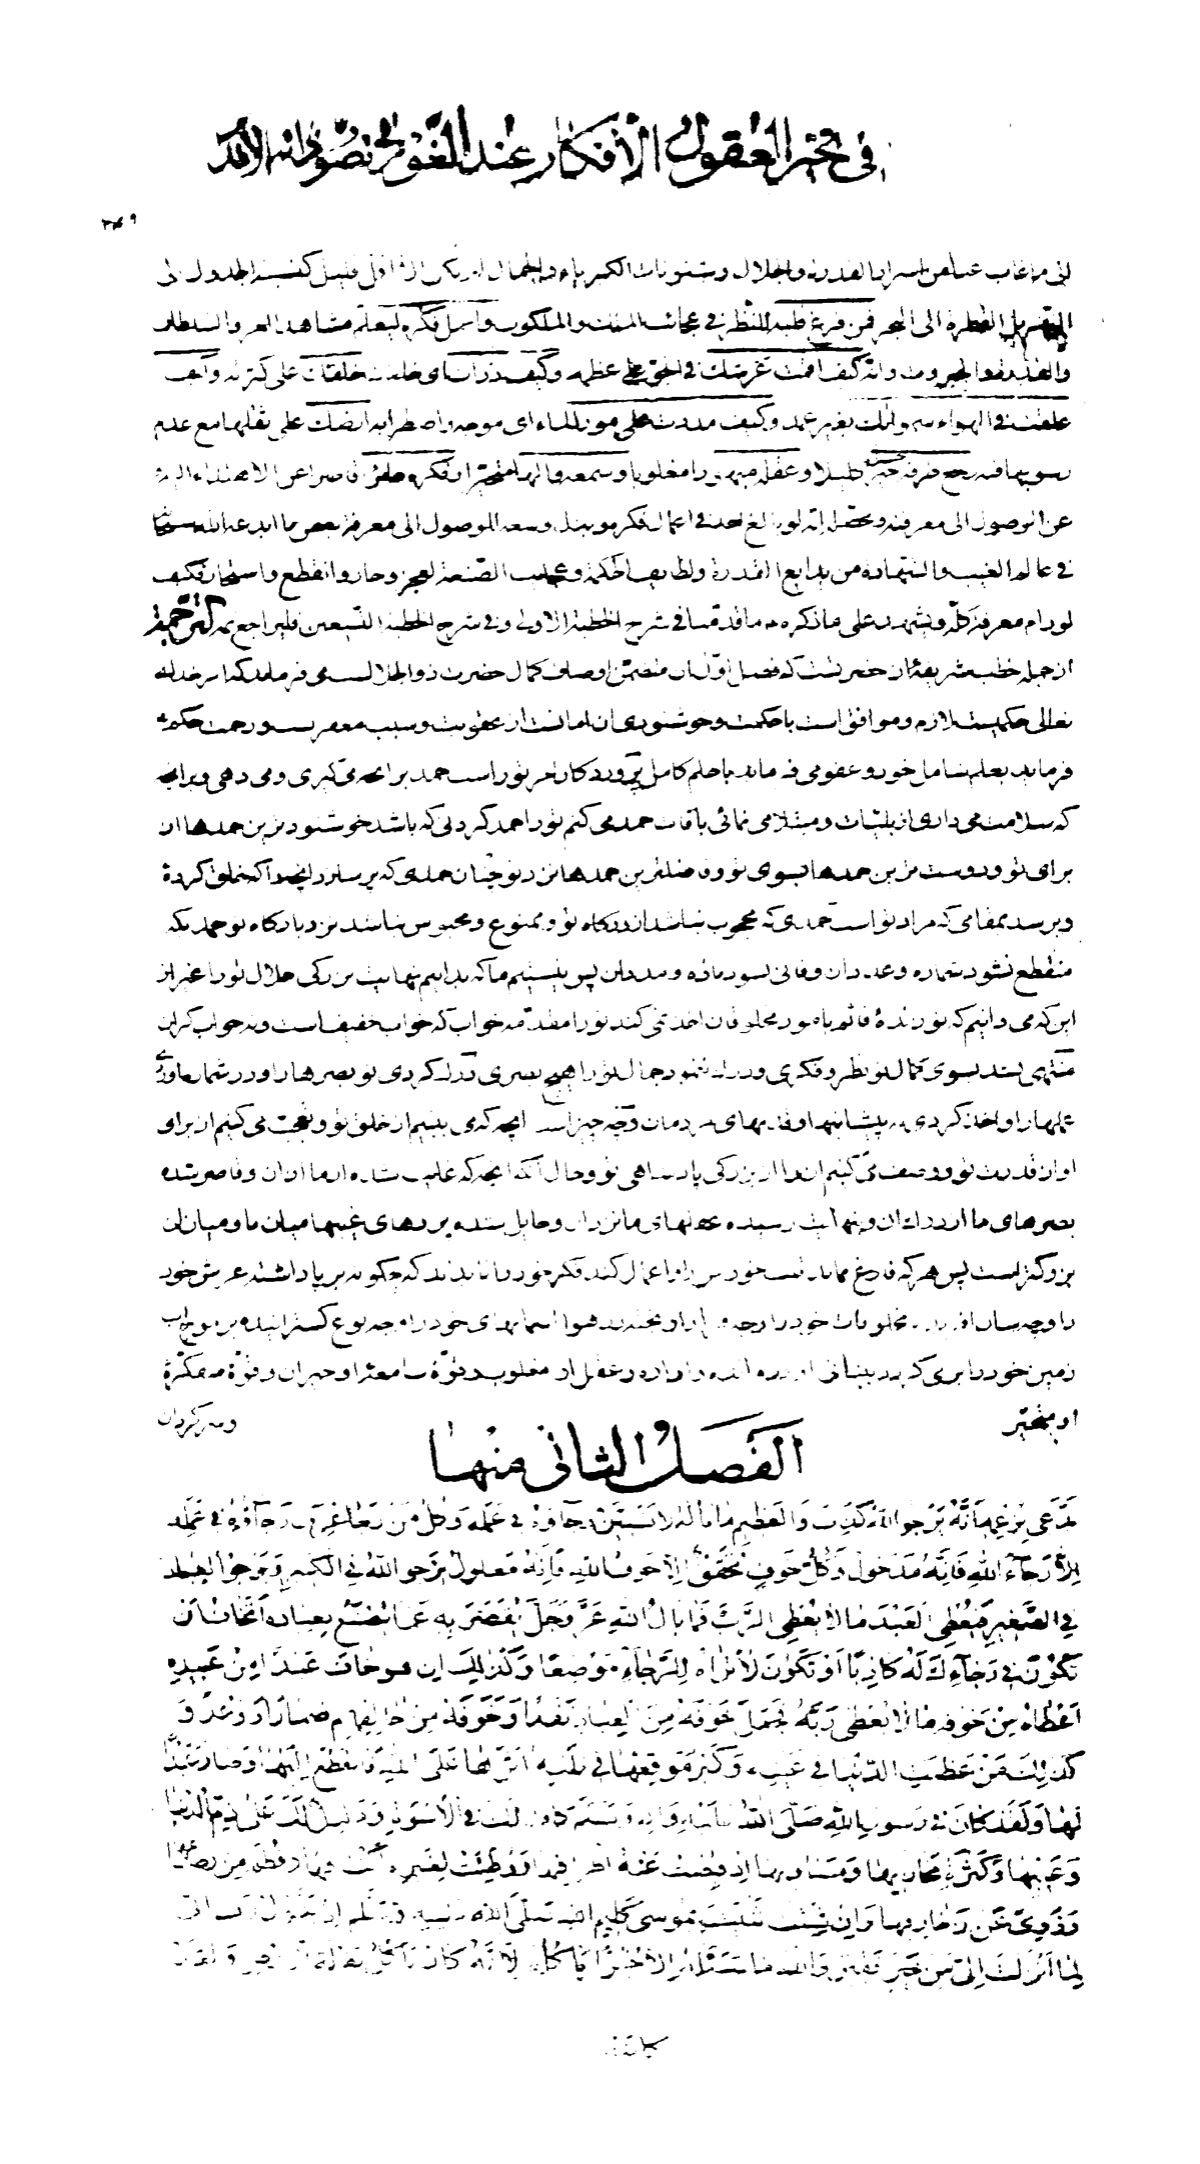 في تحير العقول و الأفكار عند الغور في تصورات الأقد
٣٤٩
الى ما غاب عنا من اسرار القدرة والجلال وشئونات الكبرياء والجمال اقل قليل كنسبة الجدول الى
القطرة الى البحر فمن فرغ قلبه للنظر في عجائب الملك والملكوت واعمل فكره ليعلم مشاهد العز والسلطان
والجبروت وانه كيف اقمت عرشك في الجو على عظمه وكيف ذرأت اي خلقت خلقك على كثرته وكيف
علقت في الهواء سمواتك بغير عمد وكيف مددت على مور الماء اي موجه واضطرابه ارضك على ثقلها مع عدم
رسوبها فيه رجع طرفه حسيرا كليلا وعقله مبهورا مغلوبا وسمعه والها متحيرا وفكره حائرا قاصرا عن الاهتداء
عن الوصول الى معرفته ومحصل انه لو بالغ احد في اعمال فكره وبذل وسعه للوصول الى معرفة بعض ما ابدعه الله سبحانه
في عالم الغيب والشهادة من بدايع القدرة ولطايف الحكمة وعجايب الصنعة لعجز وحار وانقطع واستحار فكيف
لو رام معرفة كله ويشهد على ما ذكره ما قدمنا في شرح الخطبة الاولى وفي شرح الخطبة التسعين فليراجع ثمة الترجمة
از جمله خطب شريفه آن حضرتست كه فصل اول آن متضمن اوصاف كمال حضرت ذو الجلالست مى فرمايد كه امر خداى
تعالى حكميست لازم وموافق است با حكمت وخوشنودى آن امانست از عقوبت وسبب مغفرت ورحمت حكم
فرمايد بعلم شامل خود وعفو مى فرمايد با حلم كامل پروردگارا مر تو راست حمد بر آنچه مى گيرى ومى دهى وبر آنچه
كه سلامت مى دارى از بليات ومبتلا مى نمائى بآفات حمد مى كنم تو را حمد كردنى كه باشد خوشنودترين حمدها از
براى تو ودوست ترين حمدها بسوى تو وفاضلترين حمدها نزد تو چنان حمدى كه پر سازد آنچه را كه خلق كرده
وبرسد بمقامى كه مراد تو است حمدى كه محجوب نباشد از درگاه تو وممنوع ومحبوس نباشد نزد بارگاه تو حمديكه
منقطع نشود شماره وعدد آن وفانى نشود ماده ومدد آن پس نيستيم ما كه بدانيم نهايت بزرگى جلال تو را غير از
اين كه مى دانيم كه تو زنده قائم بامور مخلوقان اخذ نمى كند تو را مقدمه خواب كه خواب خفيف است ونه خواب گران
منتهى نشد بسوى كمال تو نظر وفكرى ودرك ننمود جمال تو را هيچ بصرى درك كردى تو بصرها را ودر شمار آوردى
عملها را واخذ كردى پيشانيها وقدمهاى مردمان وچه چيز است آنچه كه مى بينيم از خلق تو وتعجب مى كنيم از براى
او از قدرت تو ووصف مى كنيم آن را از بزرگى پادشاهى تو وحال آنكه آنچه كه غايب شده از ما از آن وقاصر شده
بصرهاى ما از درك آن وبنهايت رسيده عقلهاى ما نزد آن وحايل شده پردهاى غيبها ميان ما وميان آن
بزرگتر است پس هر كه فارغ نمايد قلب خودش را واعمال كند فكر خود را تا بداند كه چگونه بر پا داشتى عرش خود
را وچه سان آفريدى مخلوقات خود را وچه هوا آسمانهاى خود را وچه نوع گسترانيده بر موج آب
زمين خود را بر مى گردد بينائى او در مانده وعقل او مغلوب وقوه سامعه او حيران وقوه متفكره
او متحير
وسرگردان
الفصل الثاني منها
يَدَّعي بِزَعْمِهِ أَنَّهُ يَرْجُو اللهَ كَذَبَ وَالْعَظيمِ ما بالُهُ لا يَتَبَيَّنُ رَجاؤُهُ في عَمَلِهِ وَكُلُّ مَنْ رَجا عُرِفَ رَجاؤُهُ في عَمَلِهِ
إِلاّ رَجاءَ اللهِ فَإِنَّهُ مَدْخُولٌ وَكُلُّ خَوْفٍ مُحَقَّقٌ إِلاّ خَوْفَ اللهِ فَإِنَّهُ مَعْلُولٌ يَرْجُو اللهَ في الْكَبيرِ وَيَرْجُو الْعِبادَ
في الصَّغيرِ فَيُعْطِي الْعَبْدَ ما لا يُعْطِي الرَّبَّ فَما بالُ اللهِ عَزَّ وَجَلَّ يُقَصَّرُ بِهِ عَمّا يُصْنَعُ بِعِبادِهِ أَتَخافُ أَنْ
تَكُونَ في رَجائِكَ لَهُ كاذِبًا أَوْ تَكُونَ لا تَراهُ لِلرَّجاءِ مَوْضِعًا وَكَذلِكَ إِنْ هُوَ خافَ عَبْدًا مِنْ عَبيدِهِ
أَعْطاهُ مِنْ خَوْفِهِ ما لا يُعْطي رَبَّهُ فَجَعَلَ خَوْفَهُ مِنَ الْعِبادِ نَقْدًا وَخَوْفَهُ مِنْ خالِقِهِمْ ضِمارًا وَوَعْدًا وَ
كَذلِكَ مَنْ عَظُمَتِ الدُّنْيا في عَيْنِهِ وَكَبُرَ مَوْقِعُها في قَلْبِهِ آثَرَها عَلَى اللهِ فَانْقَطَعَ إِلَيْها وَصارَ عَبْدًا
لَها وَلَقَدْ كانَ في رَسُولِ اللهِ صَلَّى اللهُ عَلَيْهِ وَآلِهِ وَسَلَّمَ كافٍ لَكَ في الْأُسْوَةِ وَدَليلٌ لَكَ عَلى ذَمِّ الدُّنْيا
وَعَيْبِها وَكَثْرَةِ مَخازيها وَمَساويها إِذْ قُبِضَتْ عَنْهُ أَطْرافُها وَوُطِّئَتْ لِغَيْرِهِ أَكْنافُها وَفُطِمَ مِنْ رَضاعِها
وَزُوِيَ عَنْ زَخارِفِها وَإِنْ شِئْتَ ثَنَّيْتُ بِمُوسى كَليمِ اللهِ صَلَّى اللهُ عَلَيْهِ وَسَلَّمَ إِذْ يَقُولُ رَبِّ إِنّي
لِما أَنْزَلْتَ إِلَيَّ مِنْ خَيْرٍ فَقيرٌ وَاللهِ ما سَئَلَهُ إِلاّ خُبْزًا يَأْكُلُهُ لِأَنَّهُ كانَ يَأْكُلُ بَقْلَةَ الْأَرْضِ وَلَقَدْ
كانت